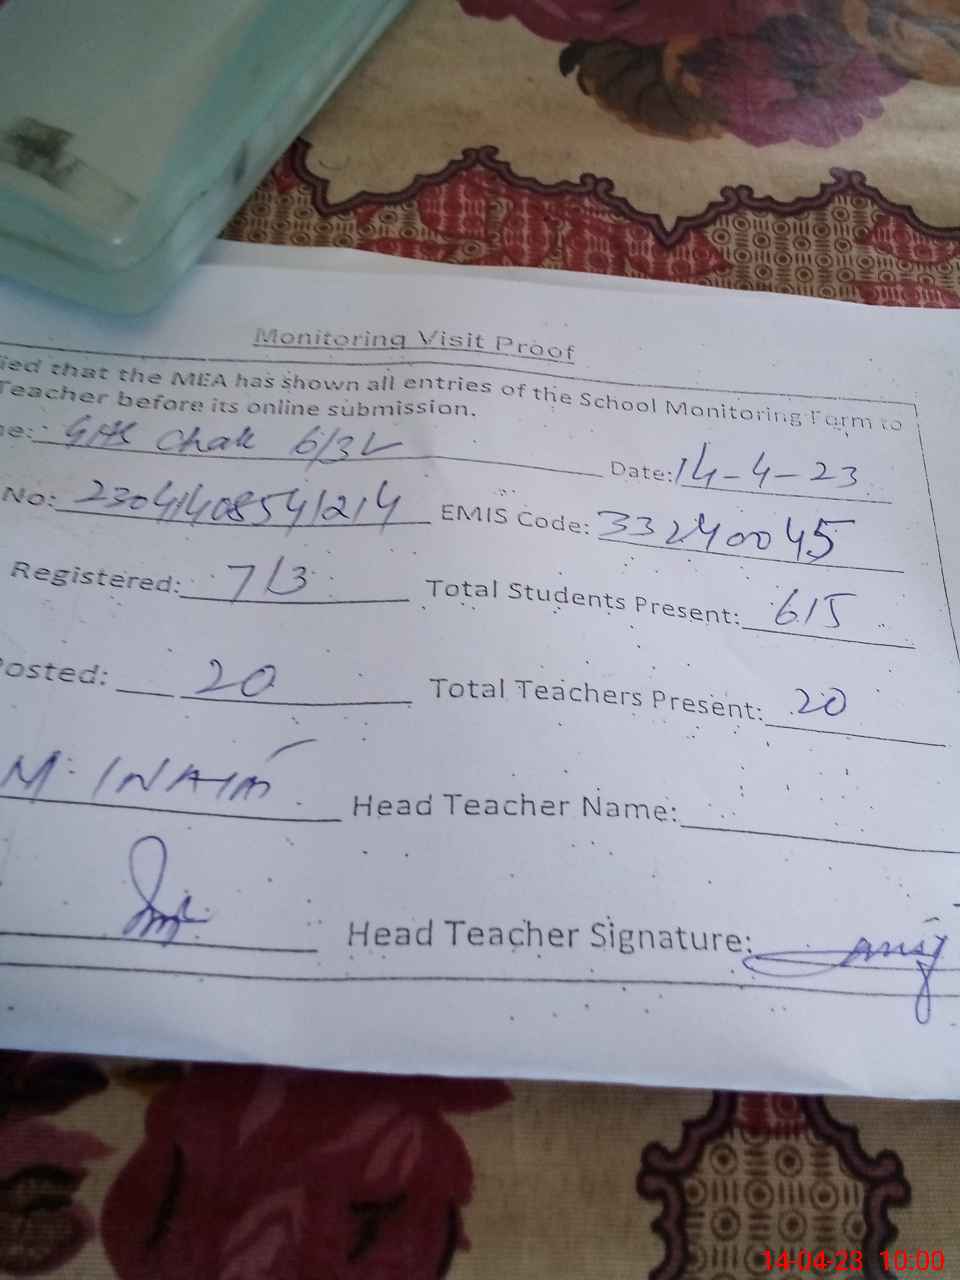 Monitoring Visit Proof
ied that the MEA has shown all entries of the School Monitoring Form to
Teacher before its online submission.
ne: GHS Chak 6/3L Date: 14-4-23
No: 23041408541214 EMIS Code: 33240045
Registered: 713 Total Students Present: 615
Posted: 20 Total Teachers Present: 20
M. INAIM Head Teacher Name:
Head Teacher Signature:
14-04-23 10:00